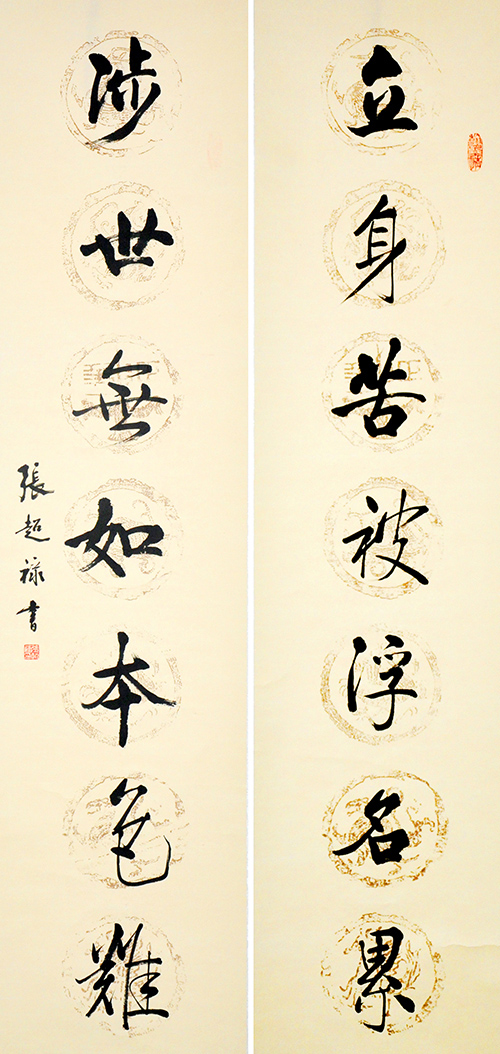 立身苦被浮名累
涉世無如本色難
張超祿書